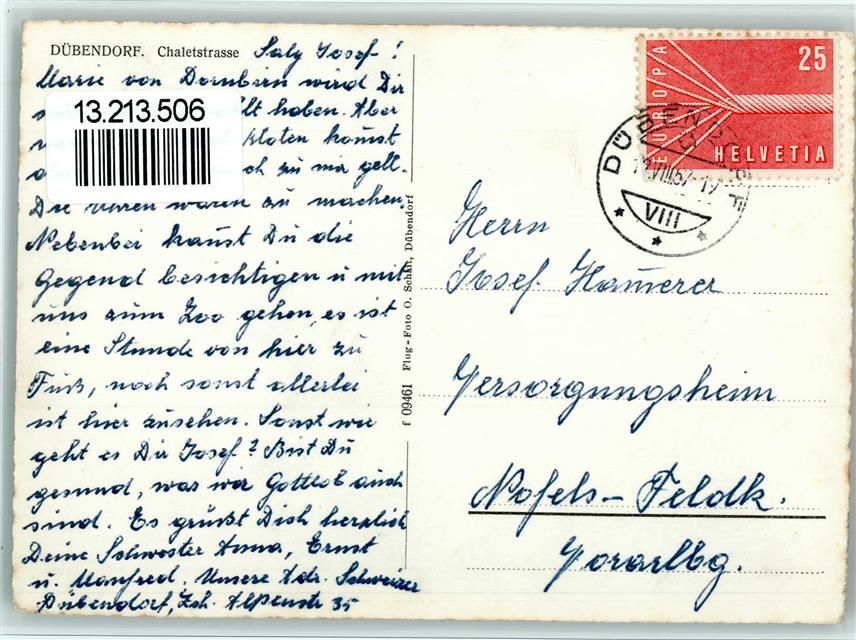 DÜBENDORF. Chaletstrasse Saly Josef!
Marie von Dornbirn wird Dir
13.213.506
haben. Aber
Kloten kannst
zu mir gell.
Die Uhren wären zu machen,
Nebenbei kanst Du die
Gegend besichtigen u mit
uns zum Zoo gehen, es ist
eine Stunde von hier zu
Fuß, noch sonst allerlei
ist hier zusehen. Sonst wie
geht es Dir Josef? Bist Du
gesund, was wir Gottlob auch
sind. Es grüßt Dich herzlich
Deine Schwester Anna, Ernst
u. Manfred. Unsere Adr. Schweizer
Dübendorf, Zch. Alpenstr 35
f 09461 Flug-Foto O. Schätt, Dübendorf
EUROPA
25
HELVETIA
DÜBENDORF
VIII
Herrn
Josef Hammerer
Versorgungsheim
Nofels - Feldk.
Vorarlbg.